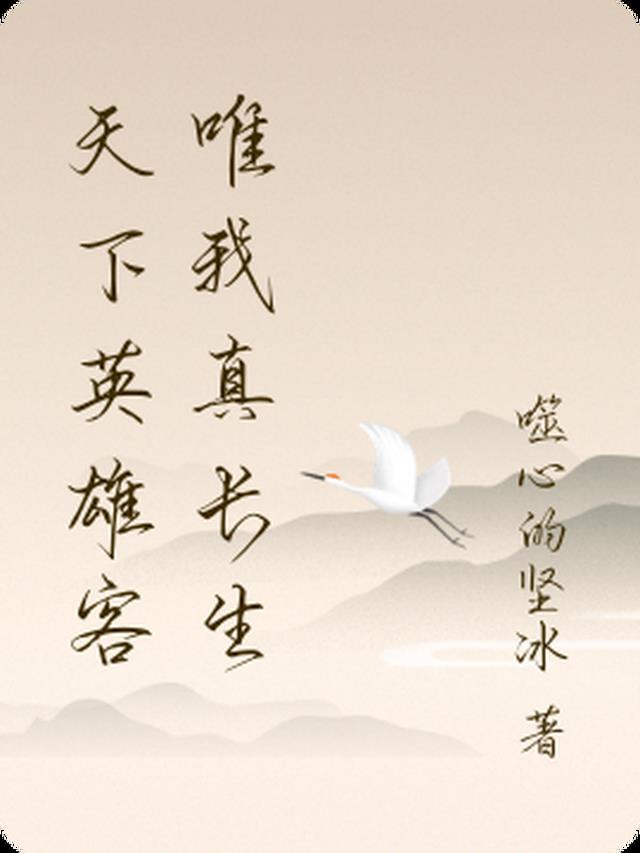 天下英雄客
唯我真长生
噬心的坚冰 著